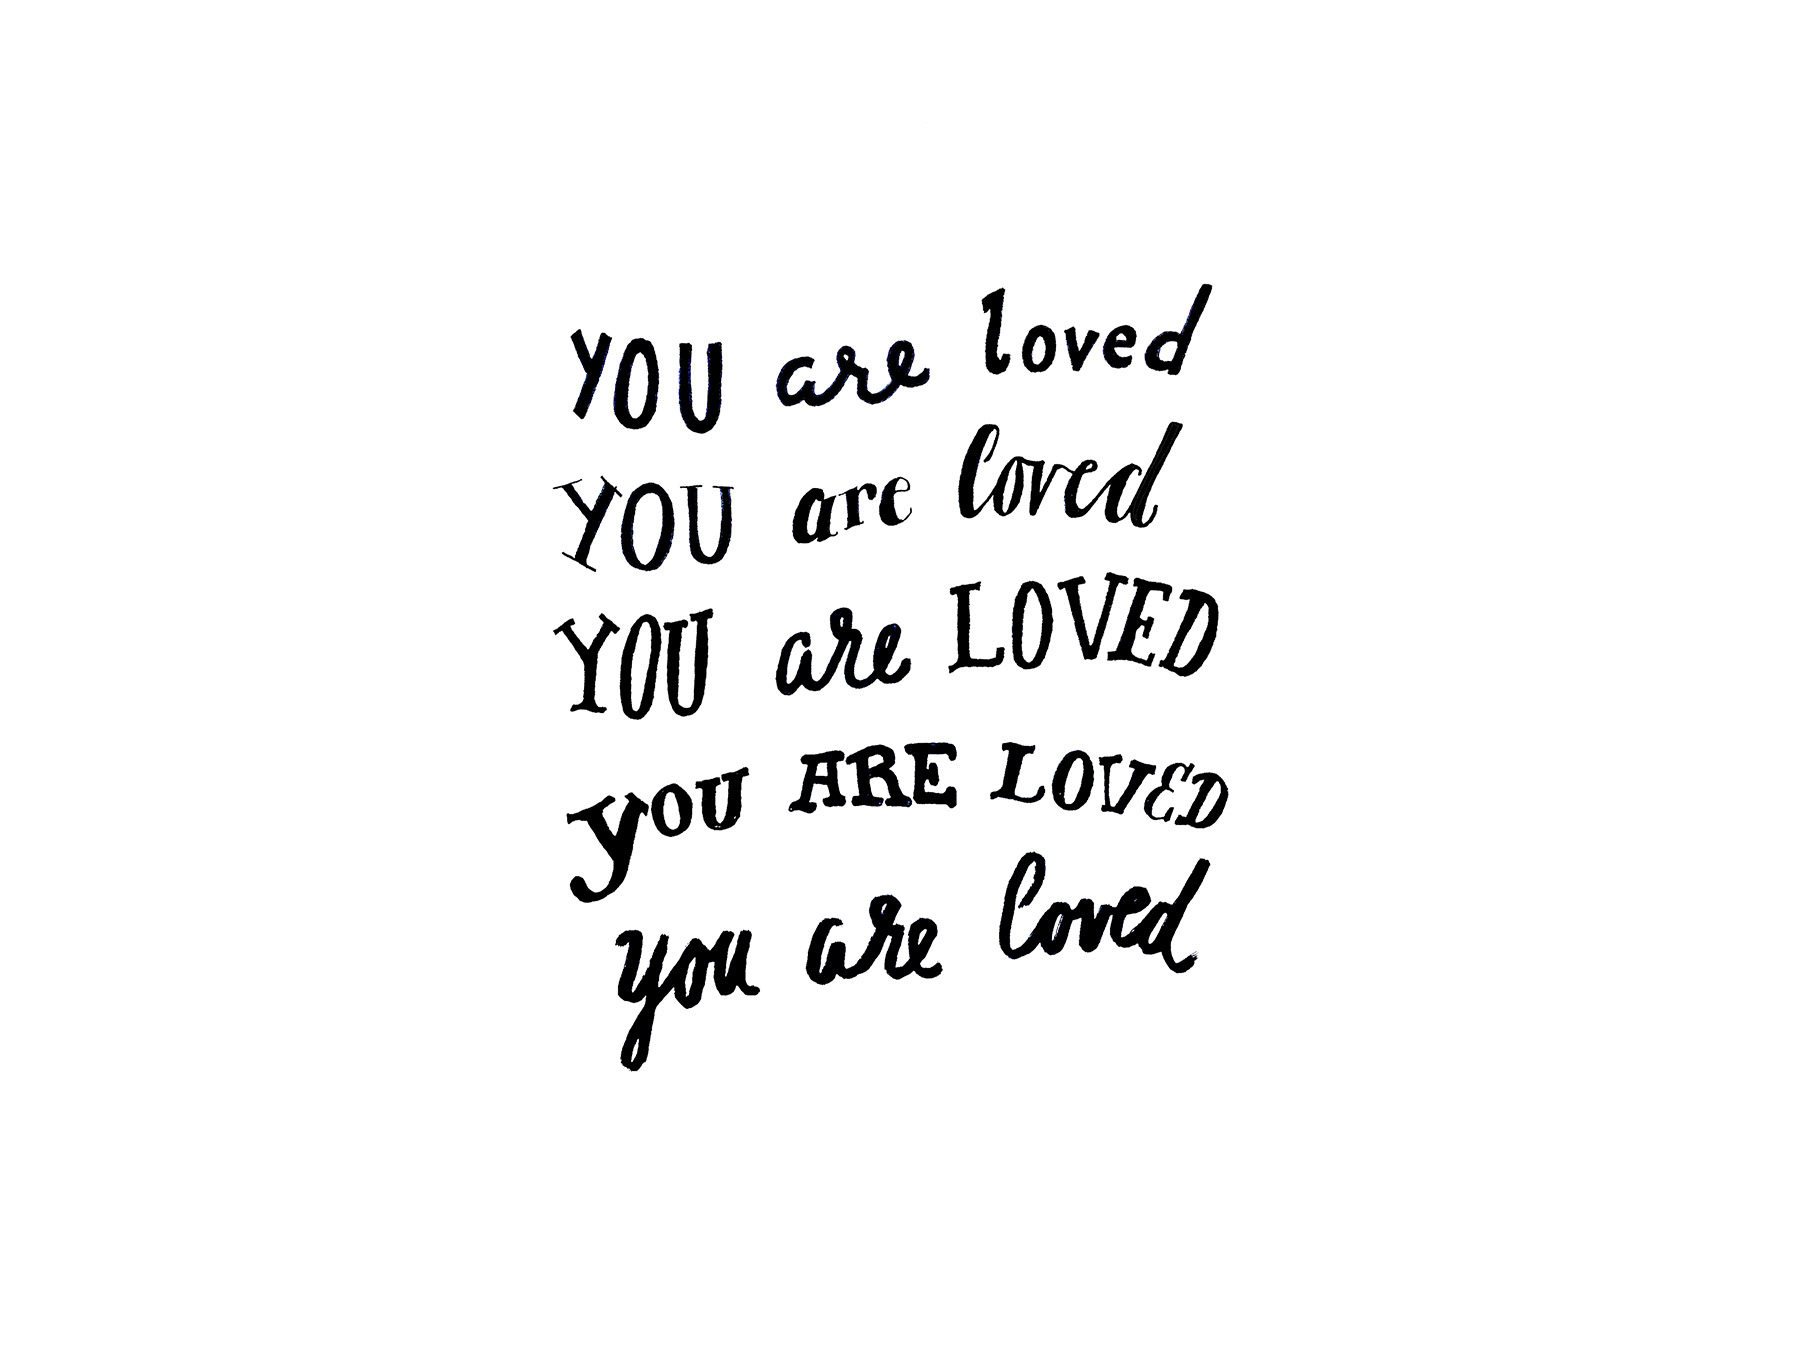 YOU are loved
YOU are loved
YOU are LOVED
you ARE LOVED
you are loved